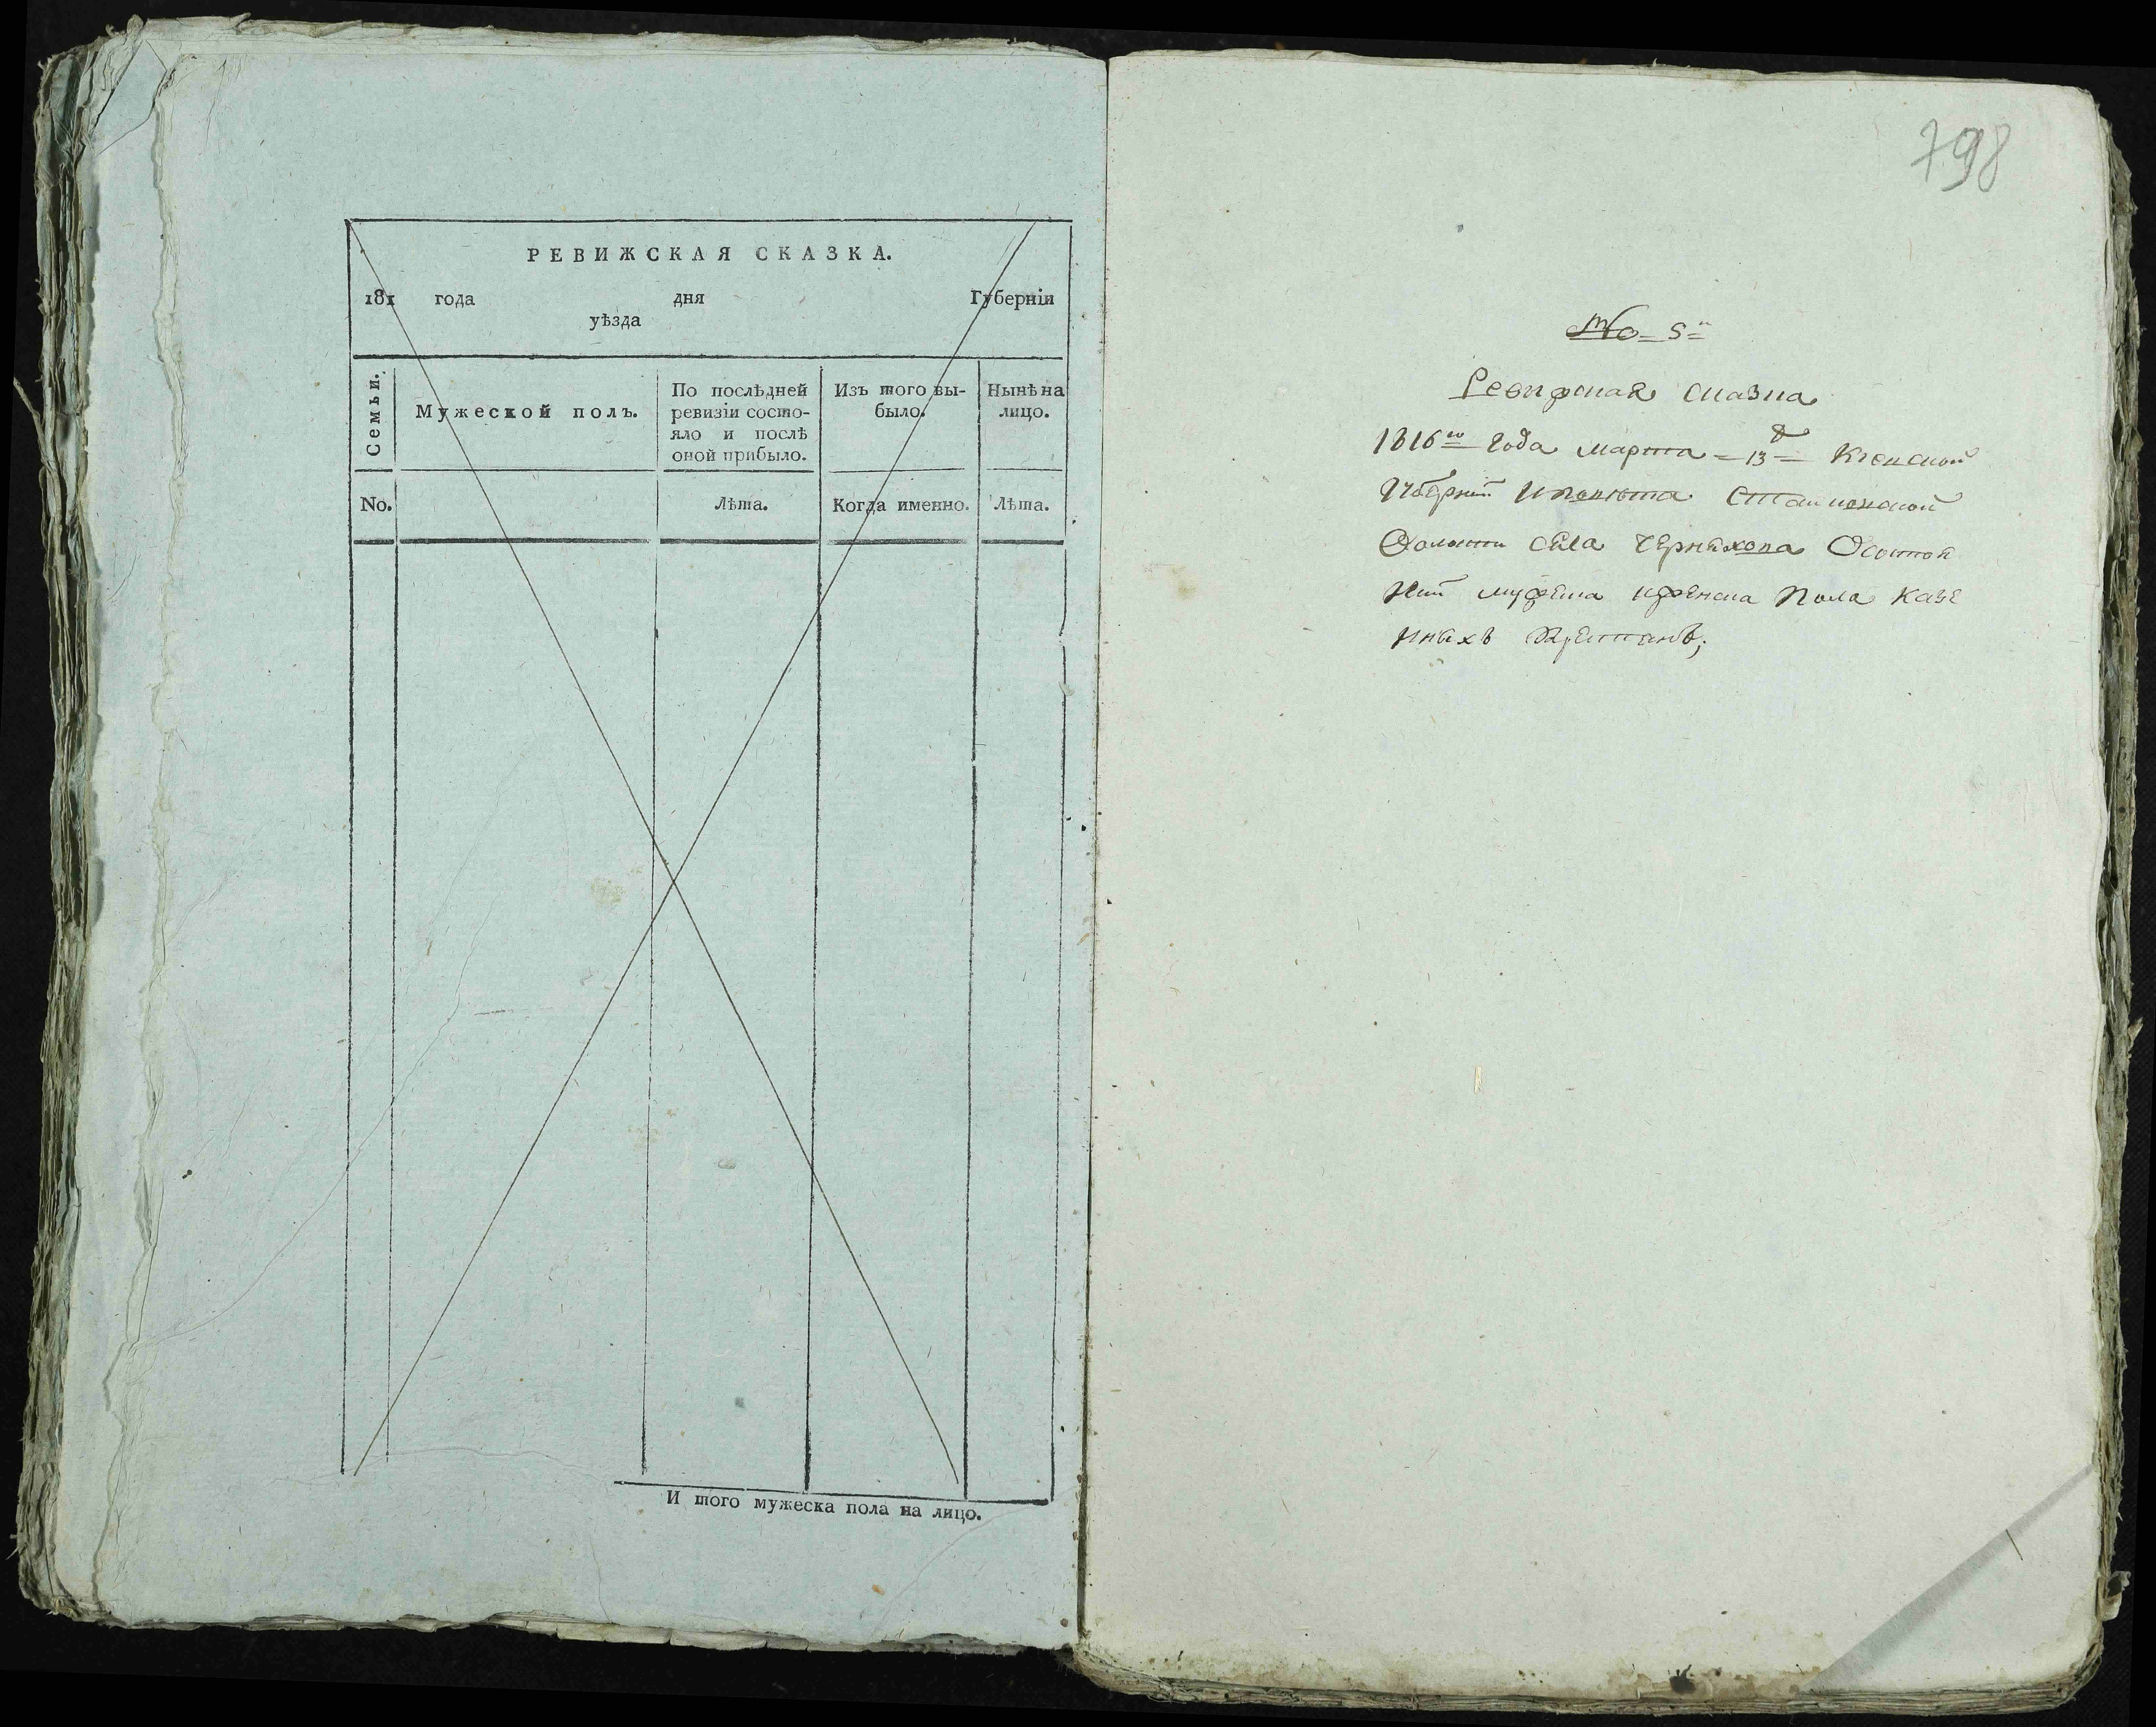 РЕВИЖСКАЯ СКАЗКА.
181 года дня Губерніи
уѣзда
Семьи.
Мужеской полъ.
По послѣдней
ревизіи состо-
яло и послѣ
оной прибыло.
Изъ того вы-
было.
Нынѣ на
лицо.
No.
Лѣта.
Когда именно.
Лѣта.
И того мужеска пола на лицо.
798
No 5
Ревижская сказка
1816го Года марта 13 Киевской
Губернии уезда
Волости села Черняхова Осостоя
нии мужеска иженска Пола Казе
нныхъ Крестянъ;